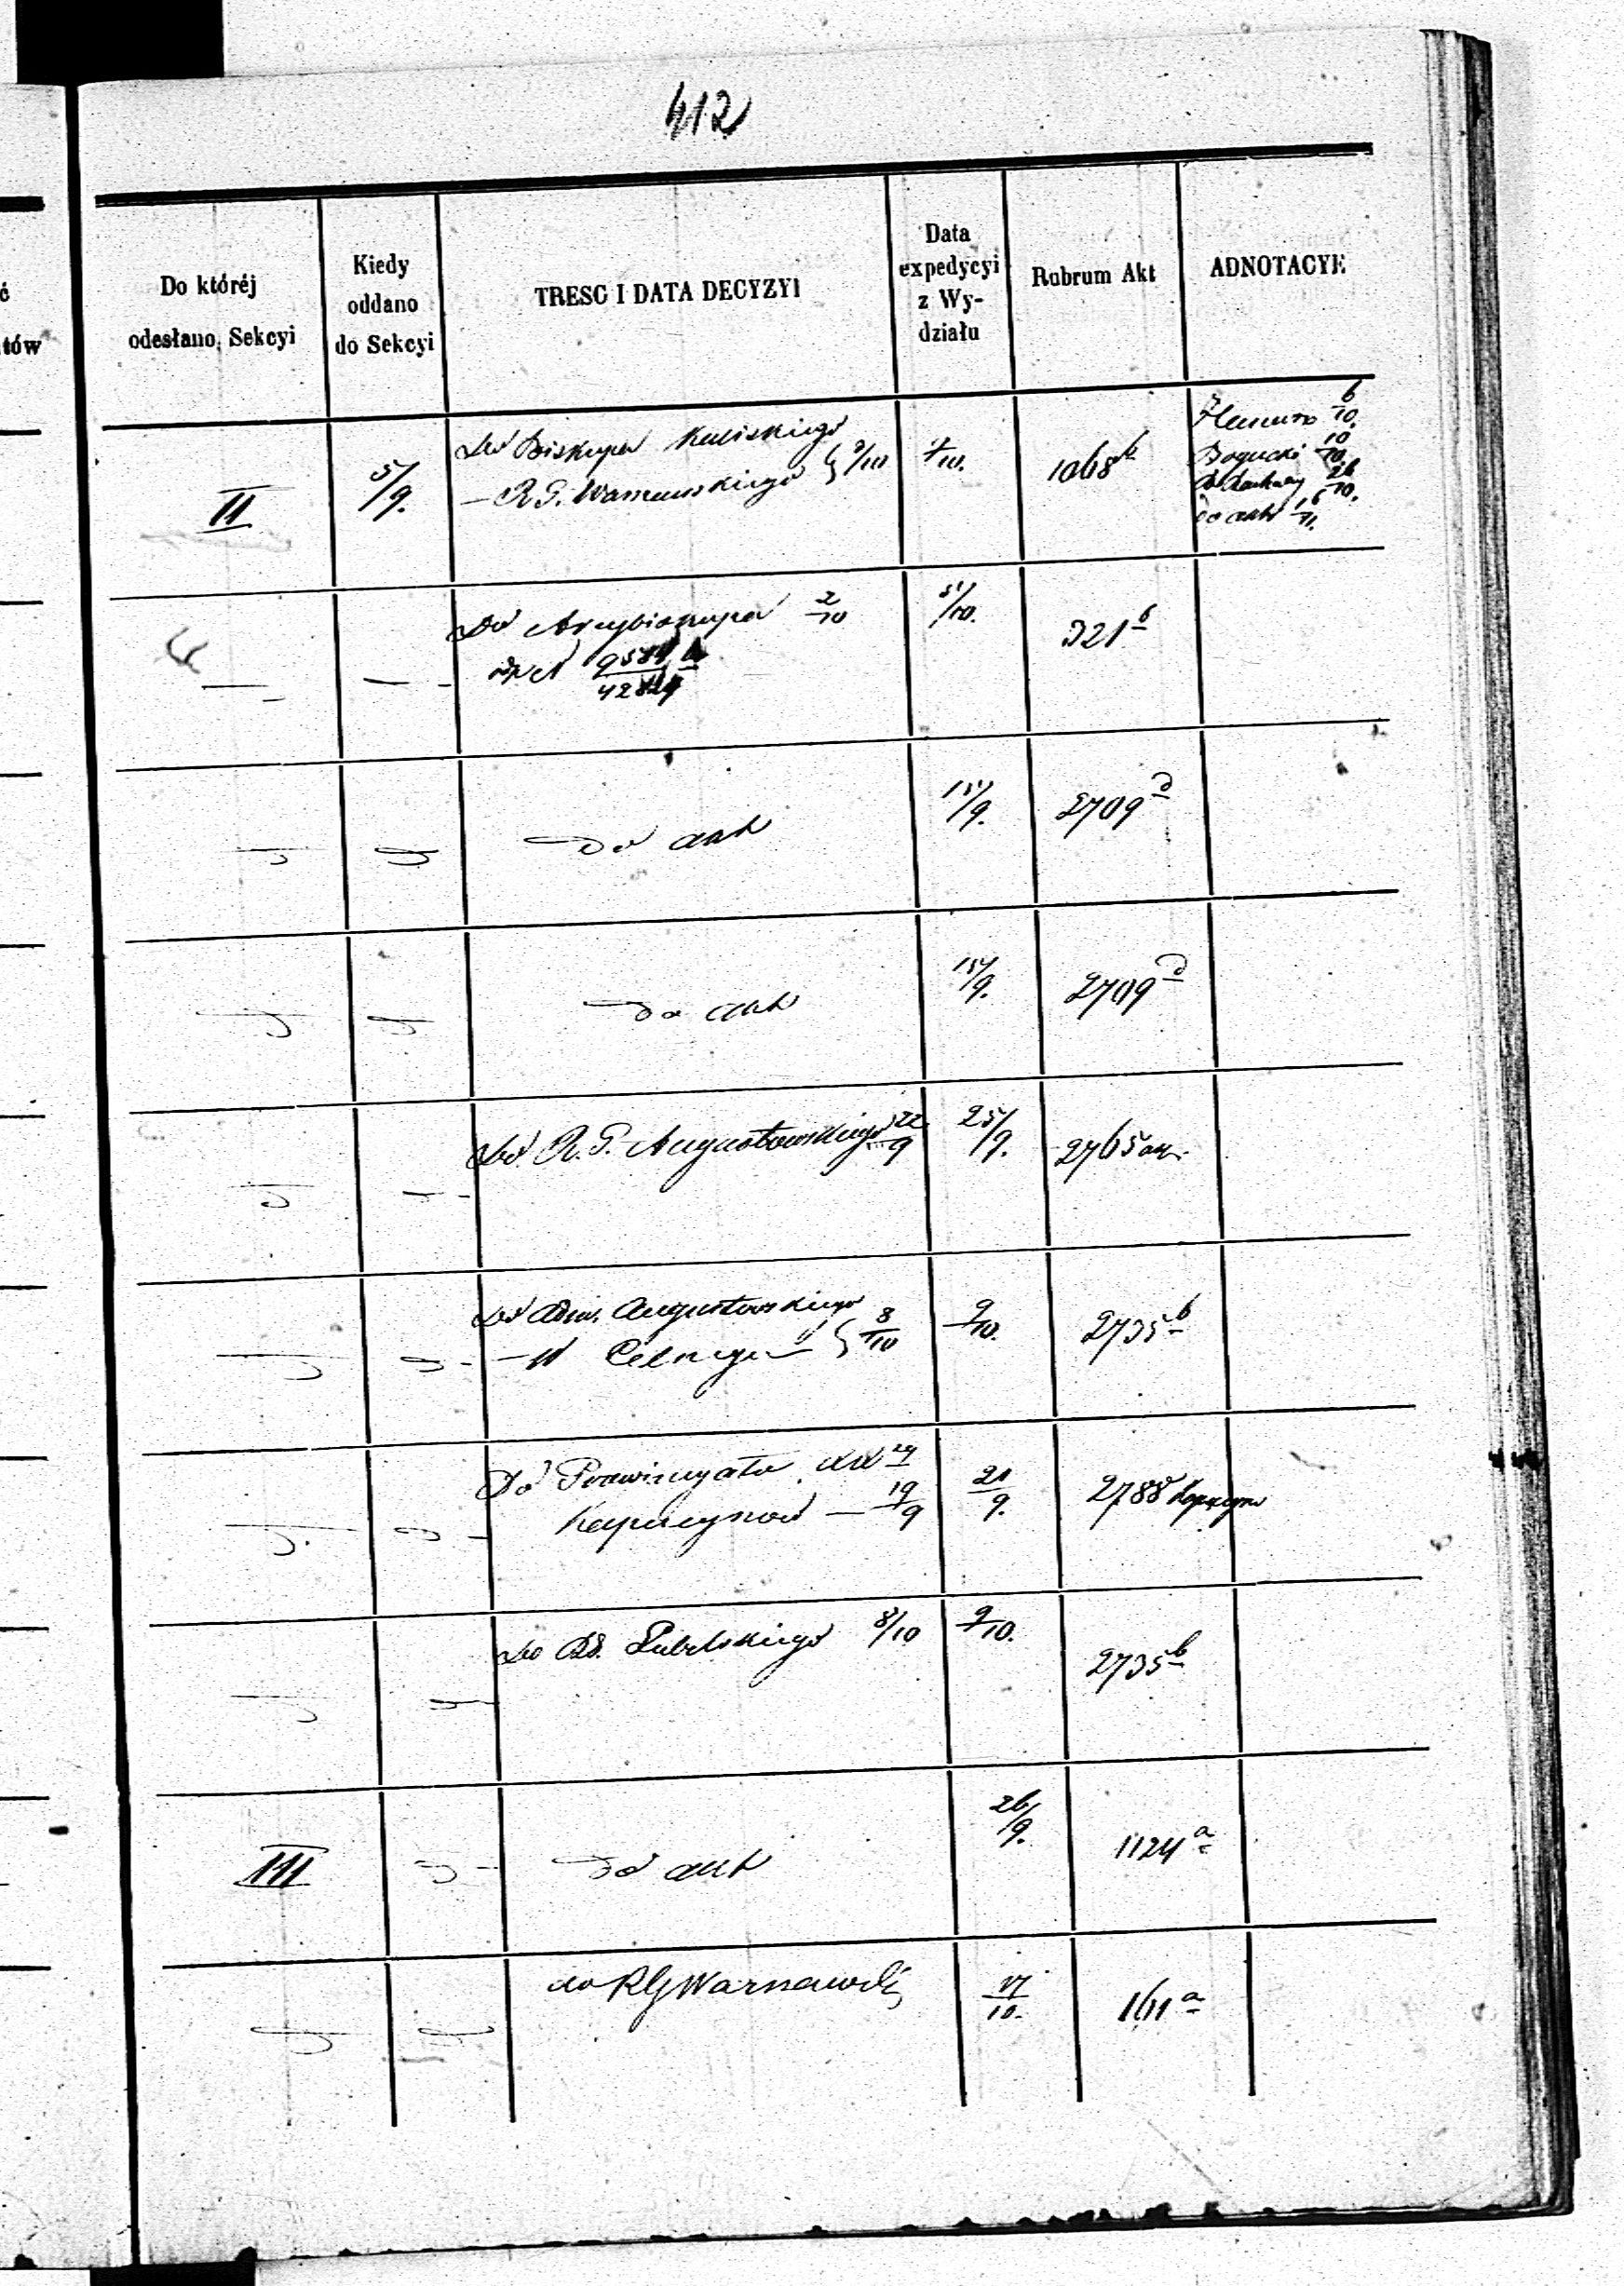 412
Do któréj
odesłano, Sekcyi
Kiedy
oddano
do Sekcyi
TRESC I DATA DECYZYI
Data
expedycyi
z Wy-
działu
Rubrum Akt
ADNOTACYE
ć
tów
II 5/9. Do Biskupa Kaliskiego
— R. G. Warszawskiego } 3/10 4/10. 1068 b
6/10.
Bogucki 10/10.
26/10.
do akt 16/11.
Do Arcybiskupa 2/10 5/10. 321 b
do akt 15/9. 2709 d
do akt 15/9. 2709 d
Do R. G. Augustowskiego 22/9 25/9. 2765
Do Adm. Augustowskiego
— } 8/10 9/10. 2735 b
Do Prowincyała XX
Kapucynów — 19/9 21/9. 2788 Kapucyn
Do Bs. Lubelskiego 8/10 9/10. 2735 b
III do akt 26/9. 1124 a
do RG Warszawski 17/10. 161 a